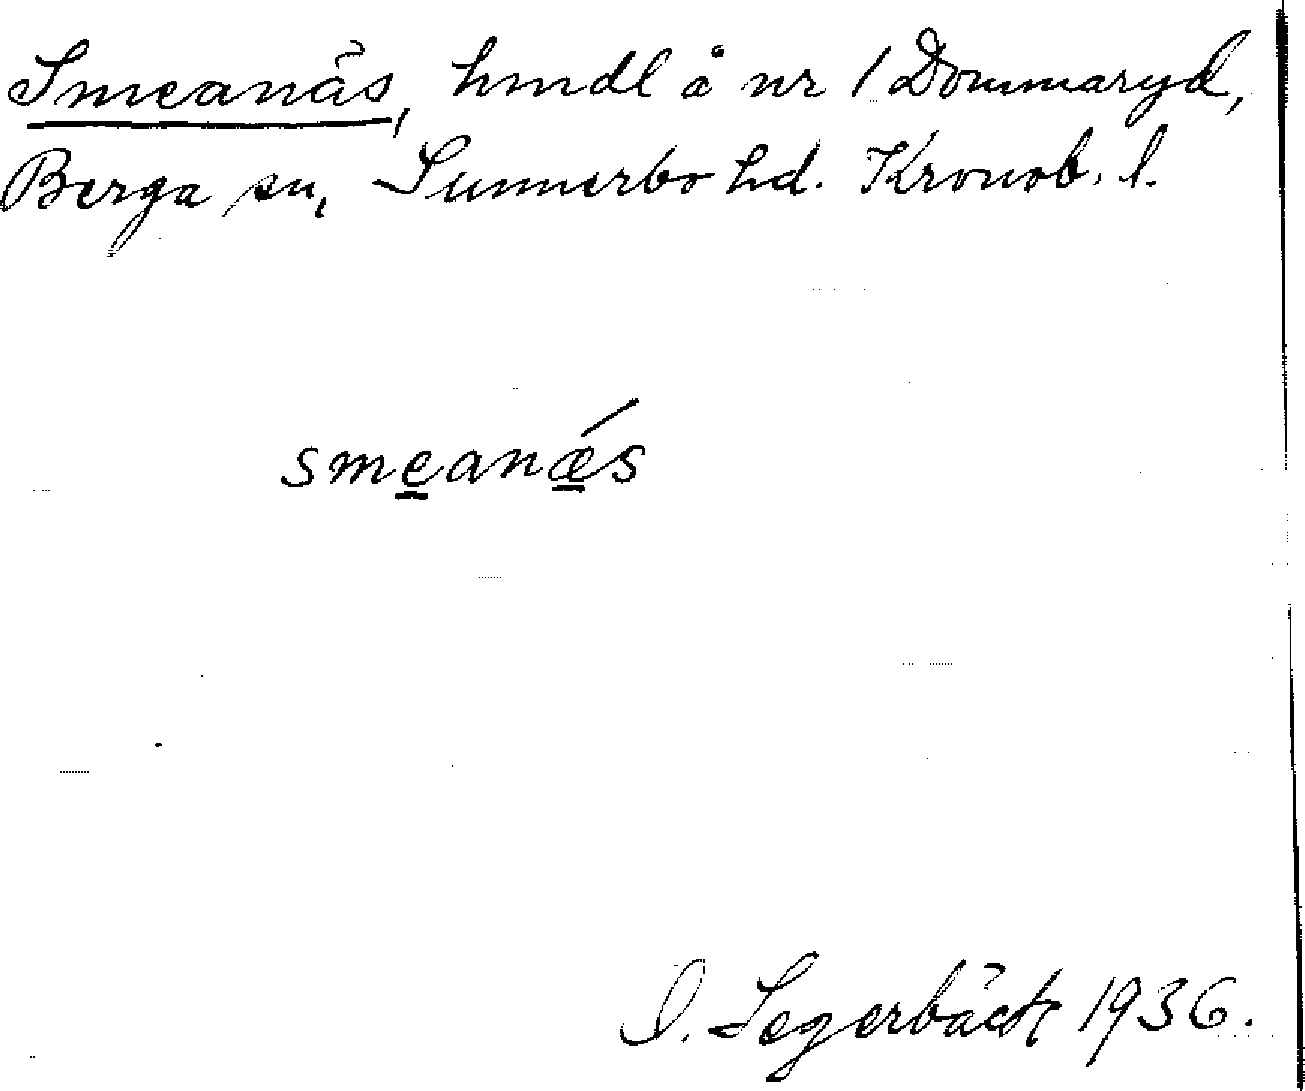 Smeanäs, hmdl å nr 1 Dommaryd,
Berga sn, Sunnerbo hd. Kronob. l.
smeanǽs
I. Segerbäck 1936.